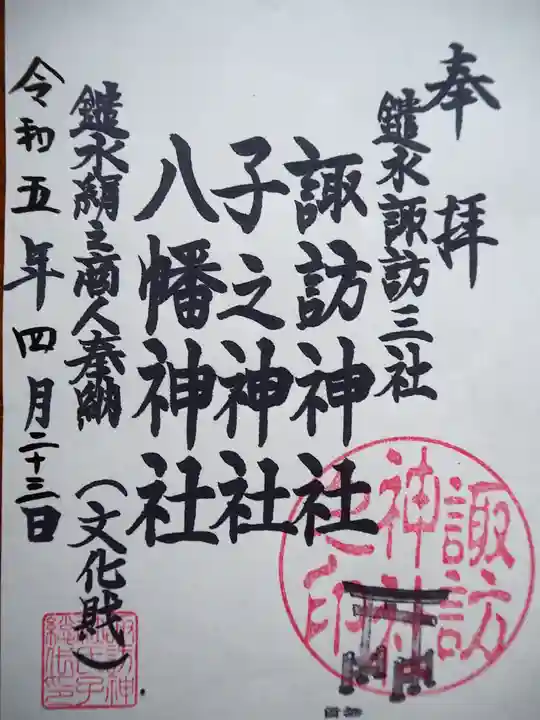 奉拝
鑓水諏訪三社
諏訪神社
子之神社
八幡神社
鑓水絹之商人奉納
(文化財)
令和五年四月二十三日
諏訪
神社
之印